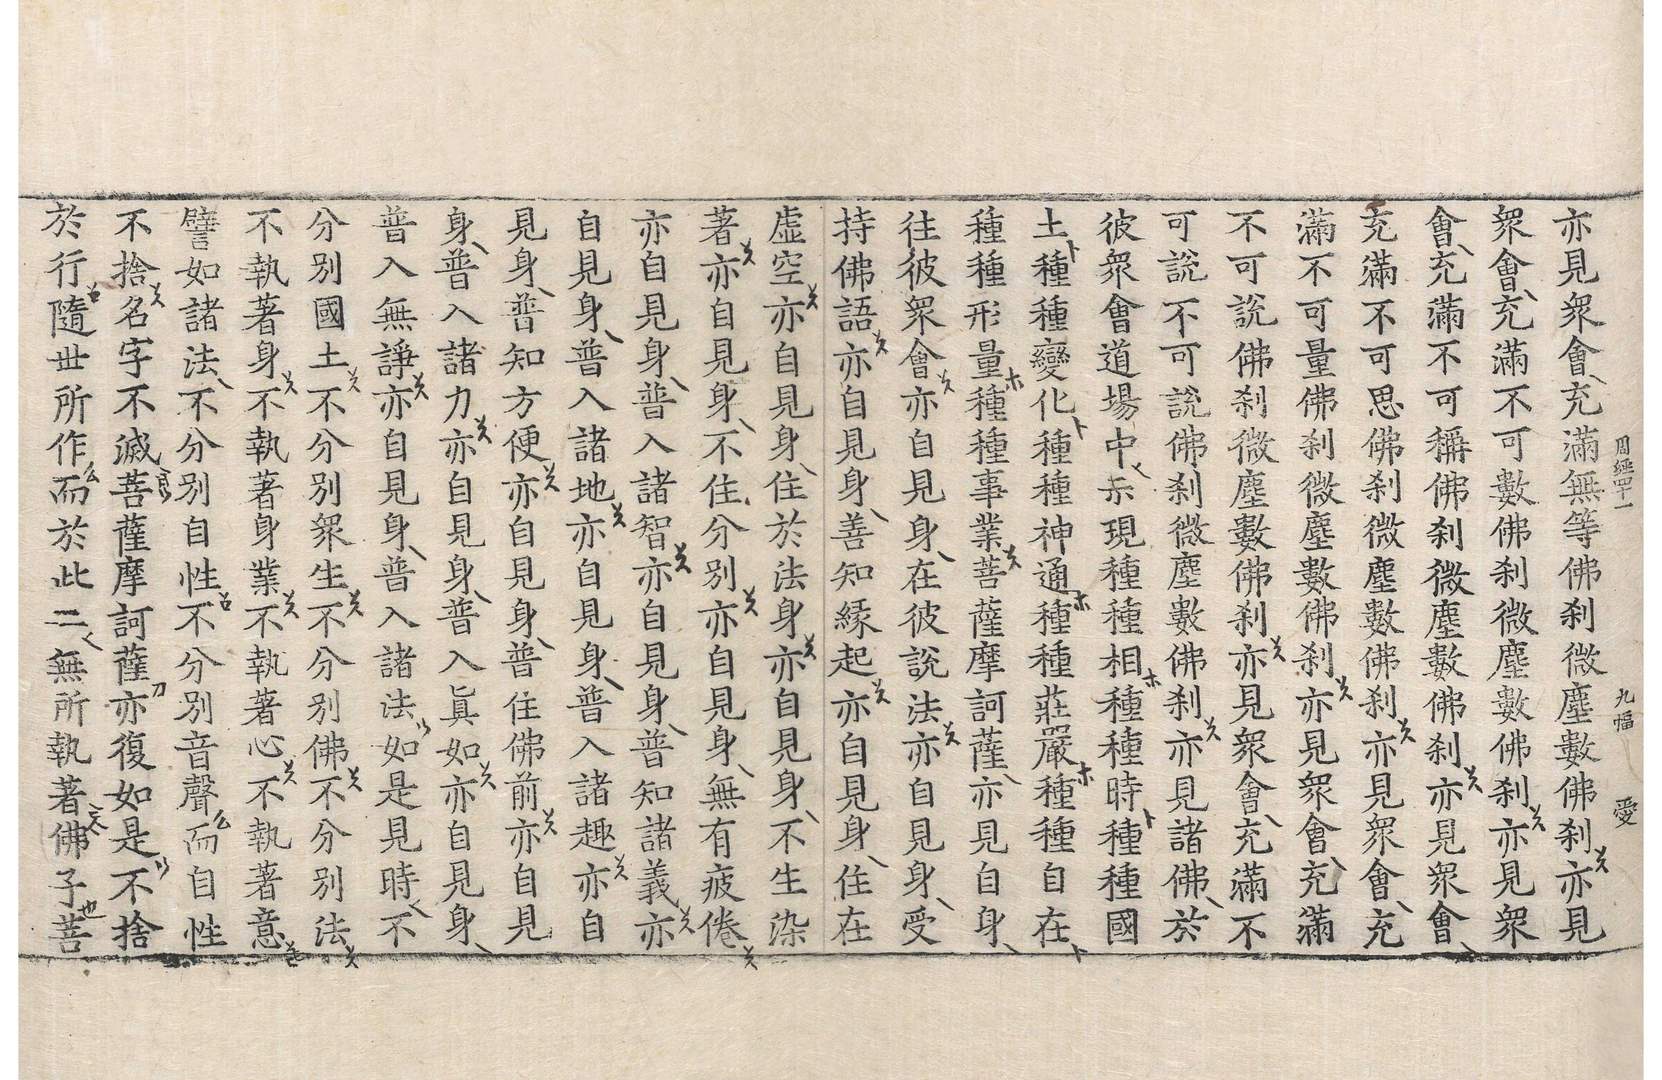 周經四十一 九幅 愛
亦見眾會充滿無等佛刹微塵數佛刹亦見
眾會充滿不可數佛刹微塵數佛刹亦見眾
會充滿不可稱佛刹微塵數佛刹亦見眾會
充滿不可思佛刹微塵數佛刹亦見眾會充
滿不可量佛刹微塵數佛刹亦見眾會充滿
不可說佛刹微塵數佛刹亦見眾會充滿不
可說不可說佛刹微塵數佛刹亦見諸佛於
彼眾會道場中示現種種相種種時種種國
土種種變化種種神通種種莊嚴種種自在
種種形量種種事業菩薩摩訶薩亦見自身
往彼眾會亦自見身在彼說法亦自見身受
持佛語亦自見身善知緣起亦自見身住在
虛空亦自見身住於法身亦自見身不生染
著亦自見身不住分別亦自見身無有疲倦
亦自見身普入諸智亦自見身普知諸義亦
自見身普入諸地亦自見身普入諸趣亦自
見身普知方便亦自見身普住佛前亦自見
身普入諸力亦自見身普入眞如亦自見身
普入無諍亦自見身普入諸法如是見時不
分別國土不分別眾生不分別佛不分別法
不執著身不執著身業不執著心不執著意
譬如諸法不分別自性不分別音聲而自性
不捨名字不滅菩薩摩訶薩亦復如是不捨
於行隨世所作而於此二無所執著佛子菩